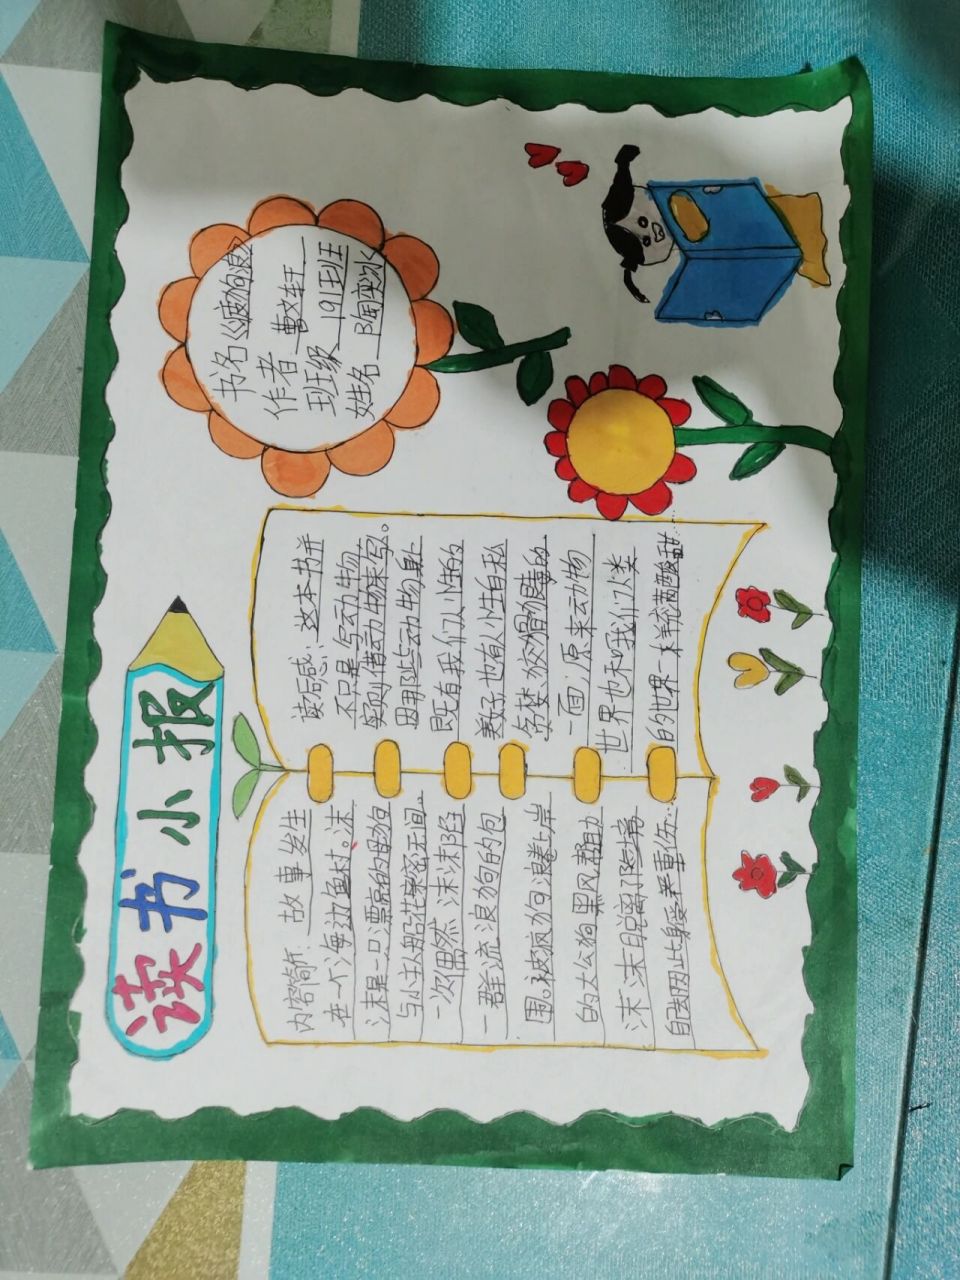 读书小报
内容简介: 故事发生
在一个海边渔村。沫
沫是一只漂亮的母狗
与小主人船花亲密无间。
一次偶然 沫沫陷
一群流浪狗的包
围。被疯狗滩上岸
的大公狗黑风帮助
沫沫脱离了险境
自己因此身受重伤...
读后感: 这本书并
不只是写动物
实则借动物来写。
因那些动物身上
既有我们人性的
义子也有人性自私
贪婪狡猾的
一面，原来动物
世界也和我们人类
的世界一样充满酸甜...
书名《疯狗浪》
作者 曹文轩
班级 191班
姓名